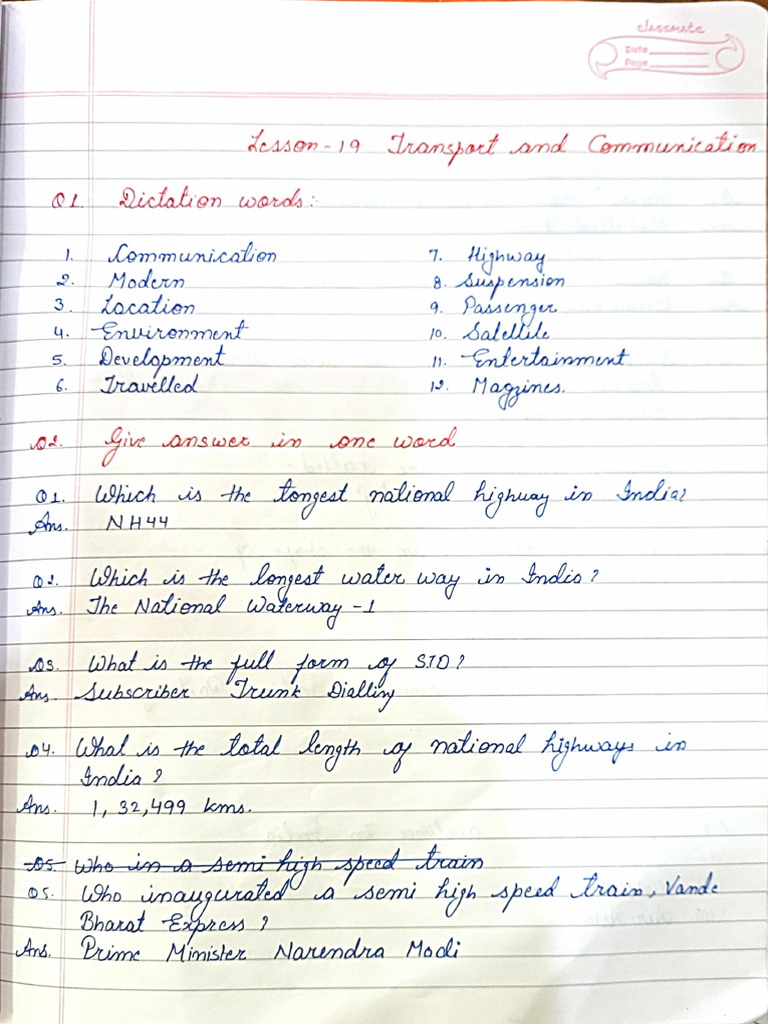 classmate
Date
Page
Lesson-19 Transport and Communication
Q1. Dictation words:
1. Communication
2. Modern
3. Location
4. Environment
5. Development
6. Travelled
7. Highway
8. Suspension
9. Passenger
10. Satellite
11. Entertainment
12. Magzines.
Q2. Give answer in one word
Q1. Which is the longest national highway in India?
Ans. NH44
Q2. Which is the longest water way in India?
Ans. The National Waterway-1
Q3. What is the full form of STD?
Ans. Subscriber Trunk Dialling
Q4. What is the total length of national highways in
India?
Ans. 1,32,499 kms.
Q5. Who in a semi high speed train
Q5. Who inaugurated a semi high speed train, Vande
Bharat Express?
Ans. Prime Minister Narendra Modi